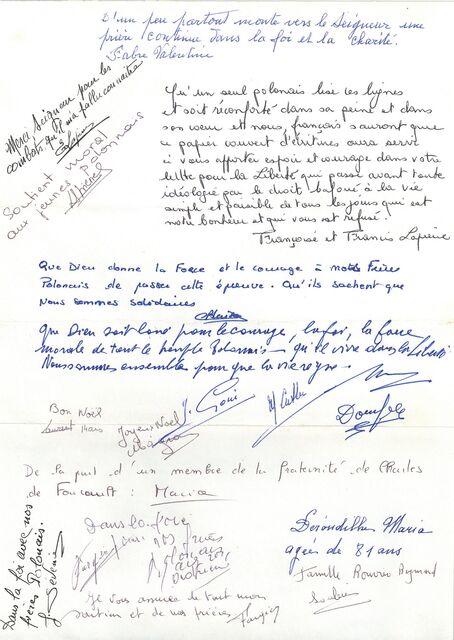 D'un peu partout monte vers le Seigneur une
prière continue dans la foi et la charité.
Fabre Valentine
Merci Seigneur pour les
combats qu'il m'a fallu connaître
Soutient moral
aux jeunes Polonais
Qu'un seul polonais lise ces lignes
et soit réconforté dans sa peine et dans
son cœur et nous, français saurons que
ce papier couvert d'écritures aura servi
à vous apporter espoir et courage dans votre
lutte pour la Liberté qui passe avant toute
idéologie par le droit bafoué à la vie
simple et paisible de tous les jours qui est
notre bonheur et qui vous est refusé.
Françoise et Francis Lapierre
Que Dieu donne la Force et le courage à nos Frères
Polonais de passer cette épreuve. Qu'ils sachent que
nous sommes solidaires
Que Dieu soit loué pour le courage, la foi, la force
morale de tout le peuple Polonais - qu'il vive dans la Liberté
Nous sommes ensemble pour que la vie
Bon Noël
Laurent 14 ans
Joyeux Noël
De la part d'un membre de la fraternité de Charles
de Foucault : Maria
Dans la foi avec nos
frères Polonais.
Dans la foi
pour nos frères
Polonais
Je vous assure de tout mon
soutien et de nos prières
Maria
agée de 81 ans
Famille Romero Raymond